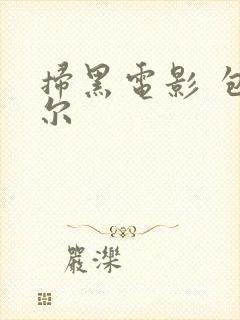 掃黑電影 包
尔
嚴濼